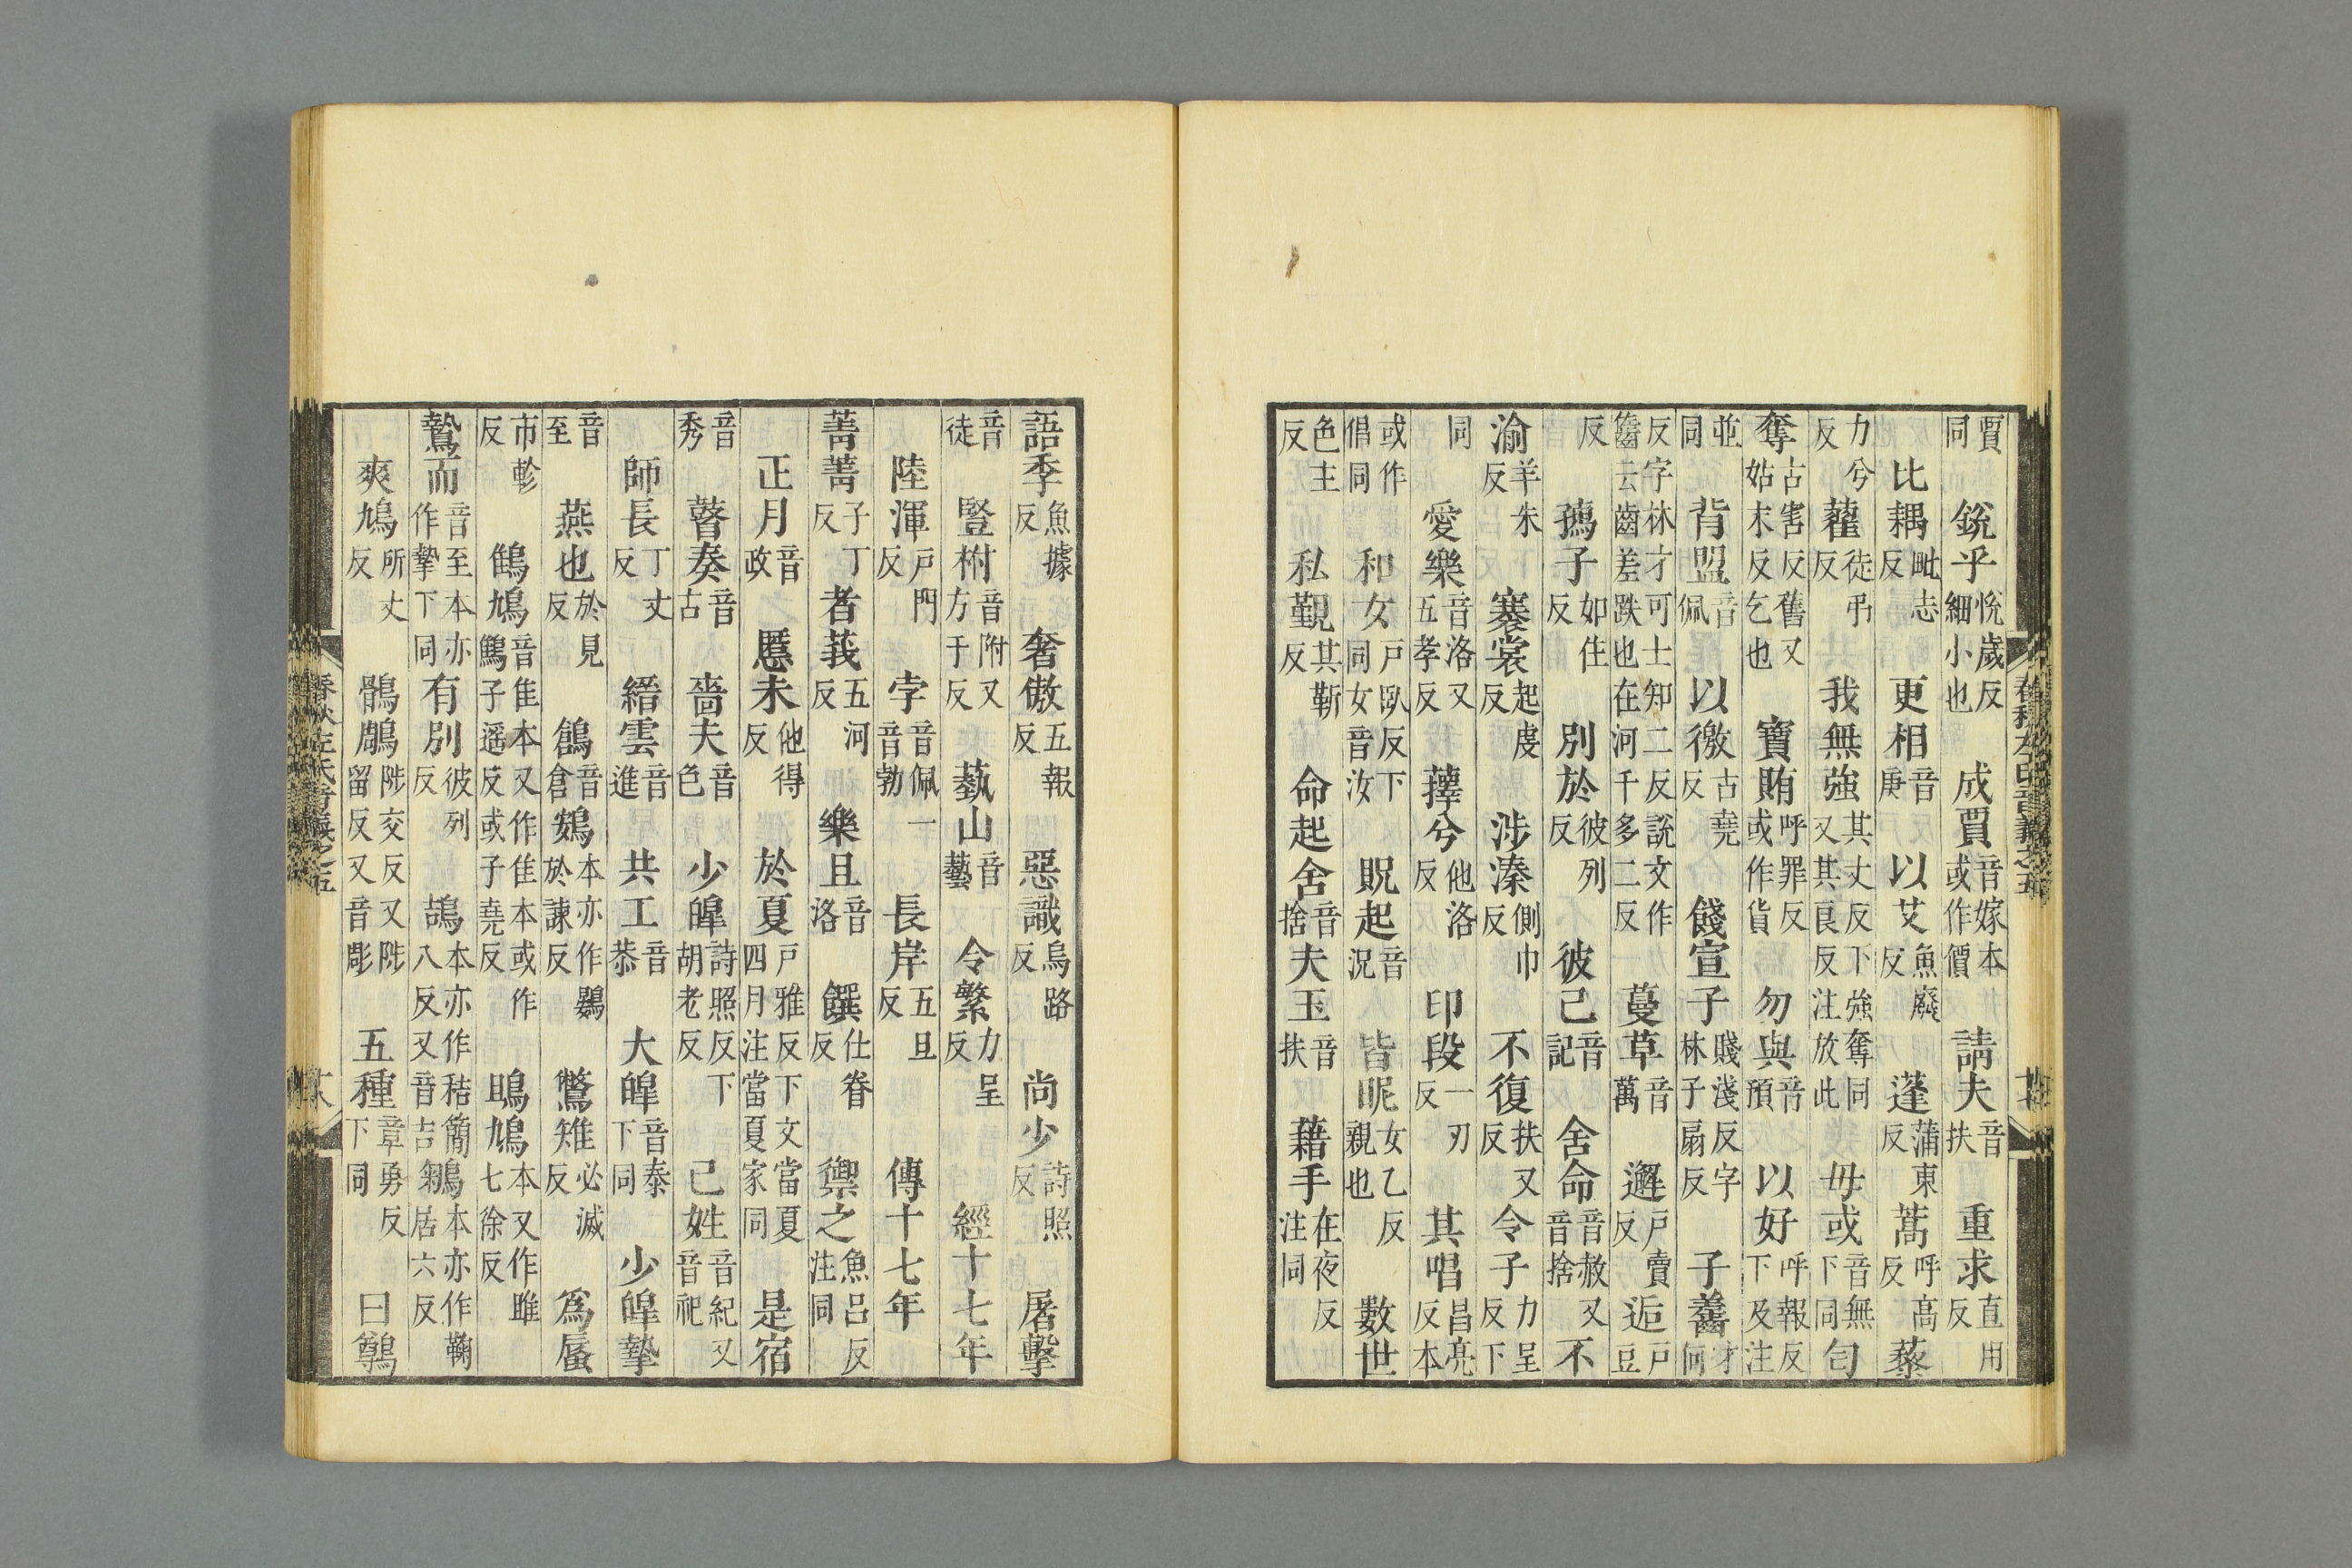 賈同 銳乎悅歲反細小也 成賈音嫁本或作價 請夫音扶 重求直用反
比耦毗志反 更相音庚 以艾魚廢反 蓬蒲東反 蒿呼高反 藜
力兮反 藋徒弔反 我無強其丈反下強奪同又其良反注放此 毋或音無下同 匄
奪古害反舊又姑末反乞也 寶賄呼罪反或作貨 勿與音預 以好呼報反下及注
並同 背盟音佩 以徼古堯反 餞宣子賤淺反字林子扇反 子齹才何
反字林才可士知二反說文作齹云齒差跌也在河千多二反 蔓草音萬 邂戶賣反 逅戶豆
反 孺子如住反 別於彼列反 彼己音記 舍命音赦又音捨 不
渝羊朱反 褰裳起虔反 涉溱側巾反 不復扶又反 令子力呈反下
同 愛樂音洛又五孝反 蘀兮他洛反 印段一刃反 其唱昌亮反本
或作倡同 和女戶臥反下同女音汝 貺起音況 皆昵女乙反親也 數世
色主反 私覲其靳反 命起舍音捨 夫玉音扶 藉手在夜反注同
語季魚據反 奢傲五報反 惡識烏路反 尚少詩照反 屠擊
音徒 豎柎音附又方于反 蓺山音藝 令繁力呈反 經十七年
陸渾戶門反 孛音佩一音勃 長岸五旦反 傳十七年
菁菁子丁反 者莪五河反 樂且音洛 饌仕眷反 禦之魚呂反注同
正月音政 慝未他得反 於夏戶雅反下文當夏四月注當夏家同 是宿
音秀 瞽奏音古 嗇夫音色 少皞詩照反下胡老反 己姓音紀又音祀
師長丁丈反 縉雲音進 共工音恭 大皞音泰下同 少皞摯
音至 燕也於見反 鶬音倉 鴳本亦作鷃於諫反 鷩雉必滅反 為蜃
市軫反 鶻鳩音隹本又作隹本或作鷦子遥反或子堯反 鴡鳩本又作雎七徐反
鷙而音至本亦作摯下同 有別彼列反 鴶本亦作秸簡八反又音吉 鵴本亦作鞠居六反
爽鳩所丈反 鶻鵰陟交反又陟留反又音彫 五種章勇反下同 曰鷷
春秋左氏音義之五